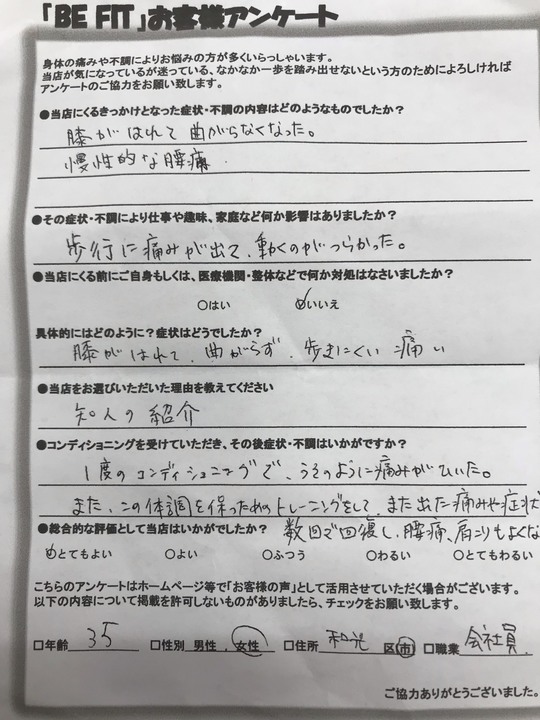 「BE FIT」お客様アンケート
身体の痛みや不調によりお悩みの方が多くいらっしゃいます。
当店が気になっているが迷っている、なかなか一歩を踏み出せないという方のためによろしければ
アンケートのご協力をお願い致します。
●当店にくるきっかけとなった症状・不調の内容はどのようなものでしたか？
膝がはれて曲がらなくなった。
慢性的な腰痛.
●その症状・不調により仕事や趣味、家庭など何か影響はありましたか？
歩行に痛みが出て、動くのがつらかった。
●当店にくる前にご自身もしくは、医療機関・整体などで何か対処はなさいましたか？
○はい ○いいえ
具体的にはどのように？症状はどうでしたか？
膝がはれて、曲がらず、歩きにくい 痛い
●当店をお選びいただいた理由を教えてください
知人の紹介
●コンディショニングを受けていただき、その後症状・不調はいかがですか？
1度のコンディショニングで、うそのように痛みがひいた。
また、この体調を保つためのトレーニングをして、また出た痛みや症状
●総合的な評価として当店はいかがでしたか？ 数回で回復し、腰痛、肩こりもよくな
○とてもよい ○よい ○ふつう ○わるい ○とてもわるい
こちらのアンケートはホームページ等で「お客様の声」として活用させていただく場合がございます。
以下の内容について掲載を許可しないものがありましたら、チェックをお願い致します。
□年齢 35 □性別 男性 . 女性 □住所 和光 区・市 □職業 会社員.
ご協力ありがとうございました。